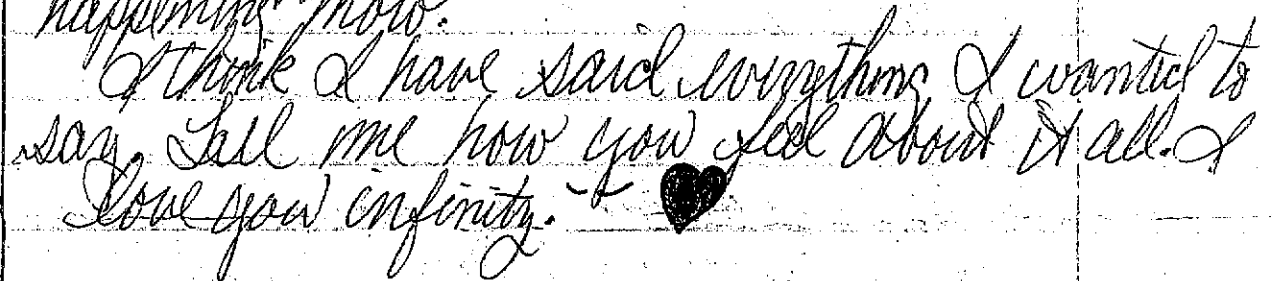 happening now.
I think I have said everything I wanted to
say. Tell me how you feel about it all. I
love you infinity. ♥